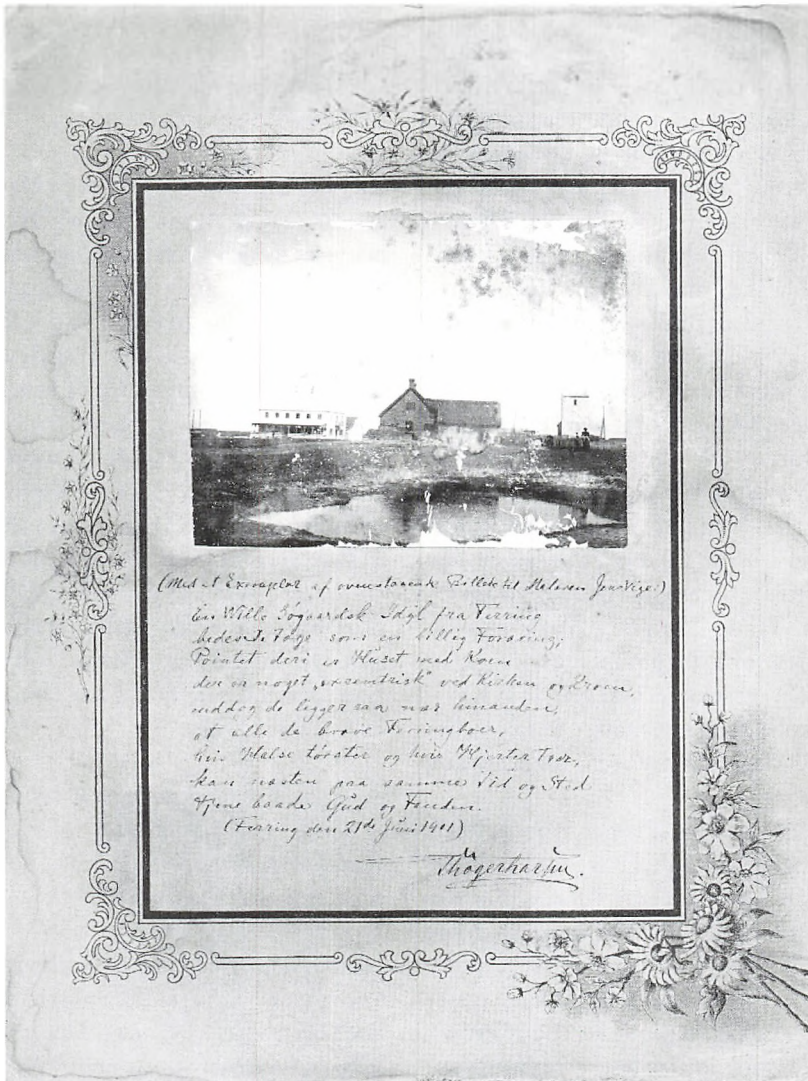 (Med et Exemplar af ovenstaaende Billede til Maleren Jens Vige:)
En Wille Søgaardsk Idyl fra Ferring
bedes De tage som en billig Foræring;
Pointet deri er Huset med Koen
der er noget „excentrisk" ved Kirken og Kroen,
enddog de ligger saa nær hinanden,
at alle de brave Ferringboer,
hvis Halse tørster og hvis Hjerter troer,
kan næsten paa samme Tid og Sted
tjene baade Gud og Fanden.
(Ferring den 21de Juni 1901)
Thøger